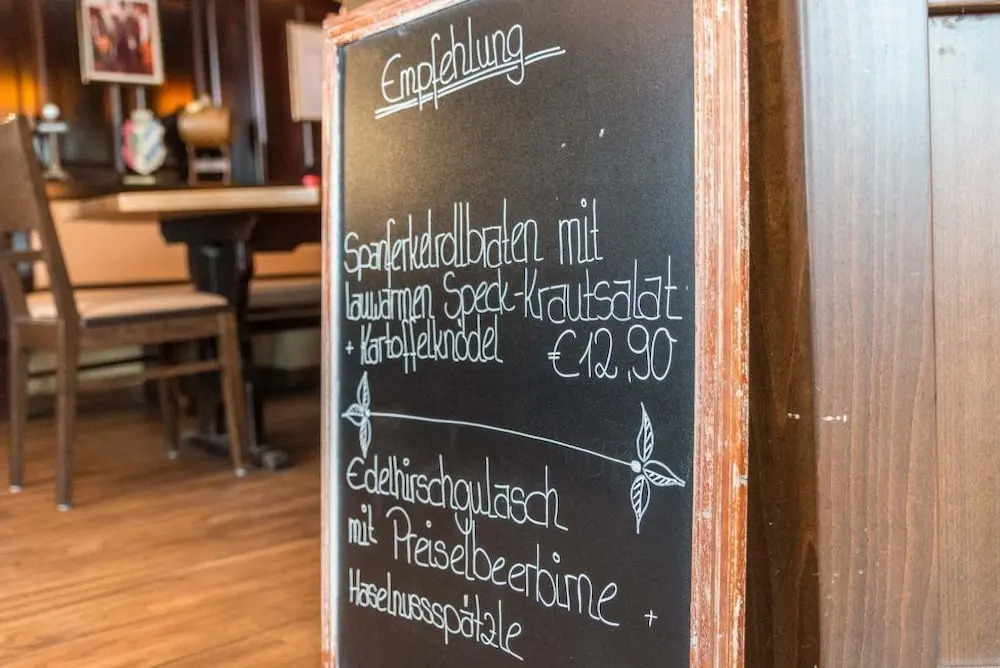 Empfehlung
Spanferkelrollbraten mit
lauwarmen Speck-Krautsalat
+ Kartoffelknödel €12,90
Edelhirschgulasch
mit Preiselbeerbirne +
Haselnussspätzle